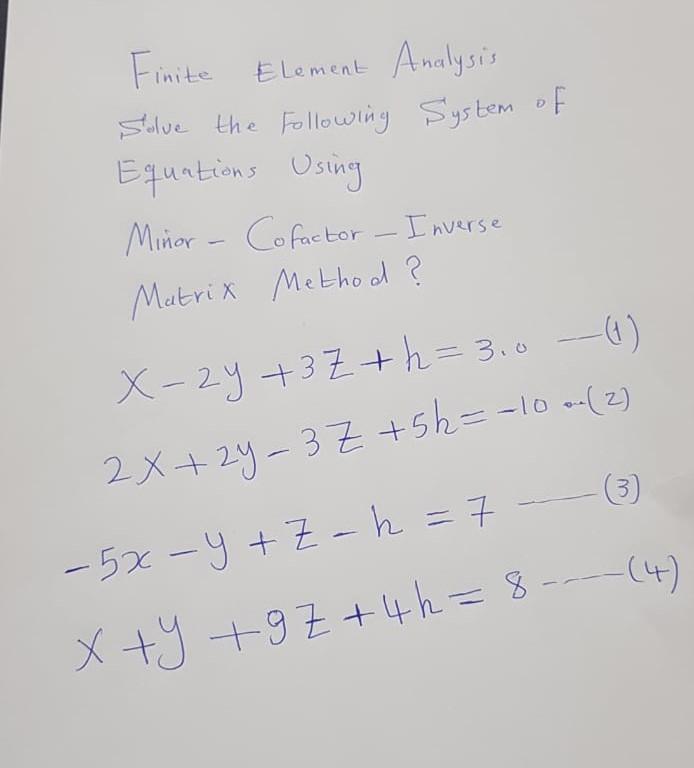 Finite Element Analysis
Solve the Following System of
Equations Using
Minor - Cofactor - Inverse
Matrix Method ?
x - 2y + 3z + h = 3.0 —(1)
2x + 2y - 3z + 5h = -10 —(2)
-5x - y + z - h = 7 —(3)
x + y + 9z + 4h = 8 ---—(4)